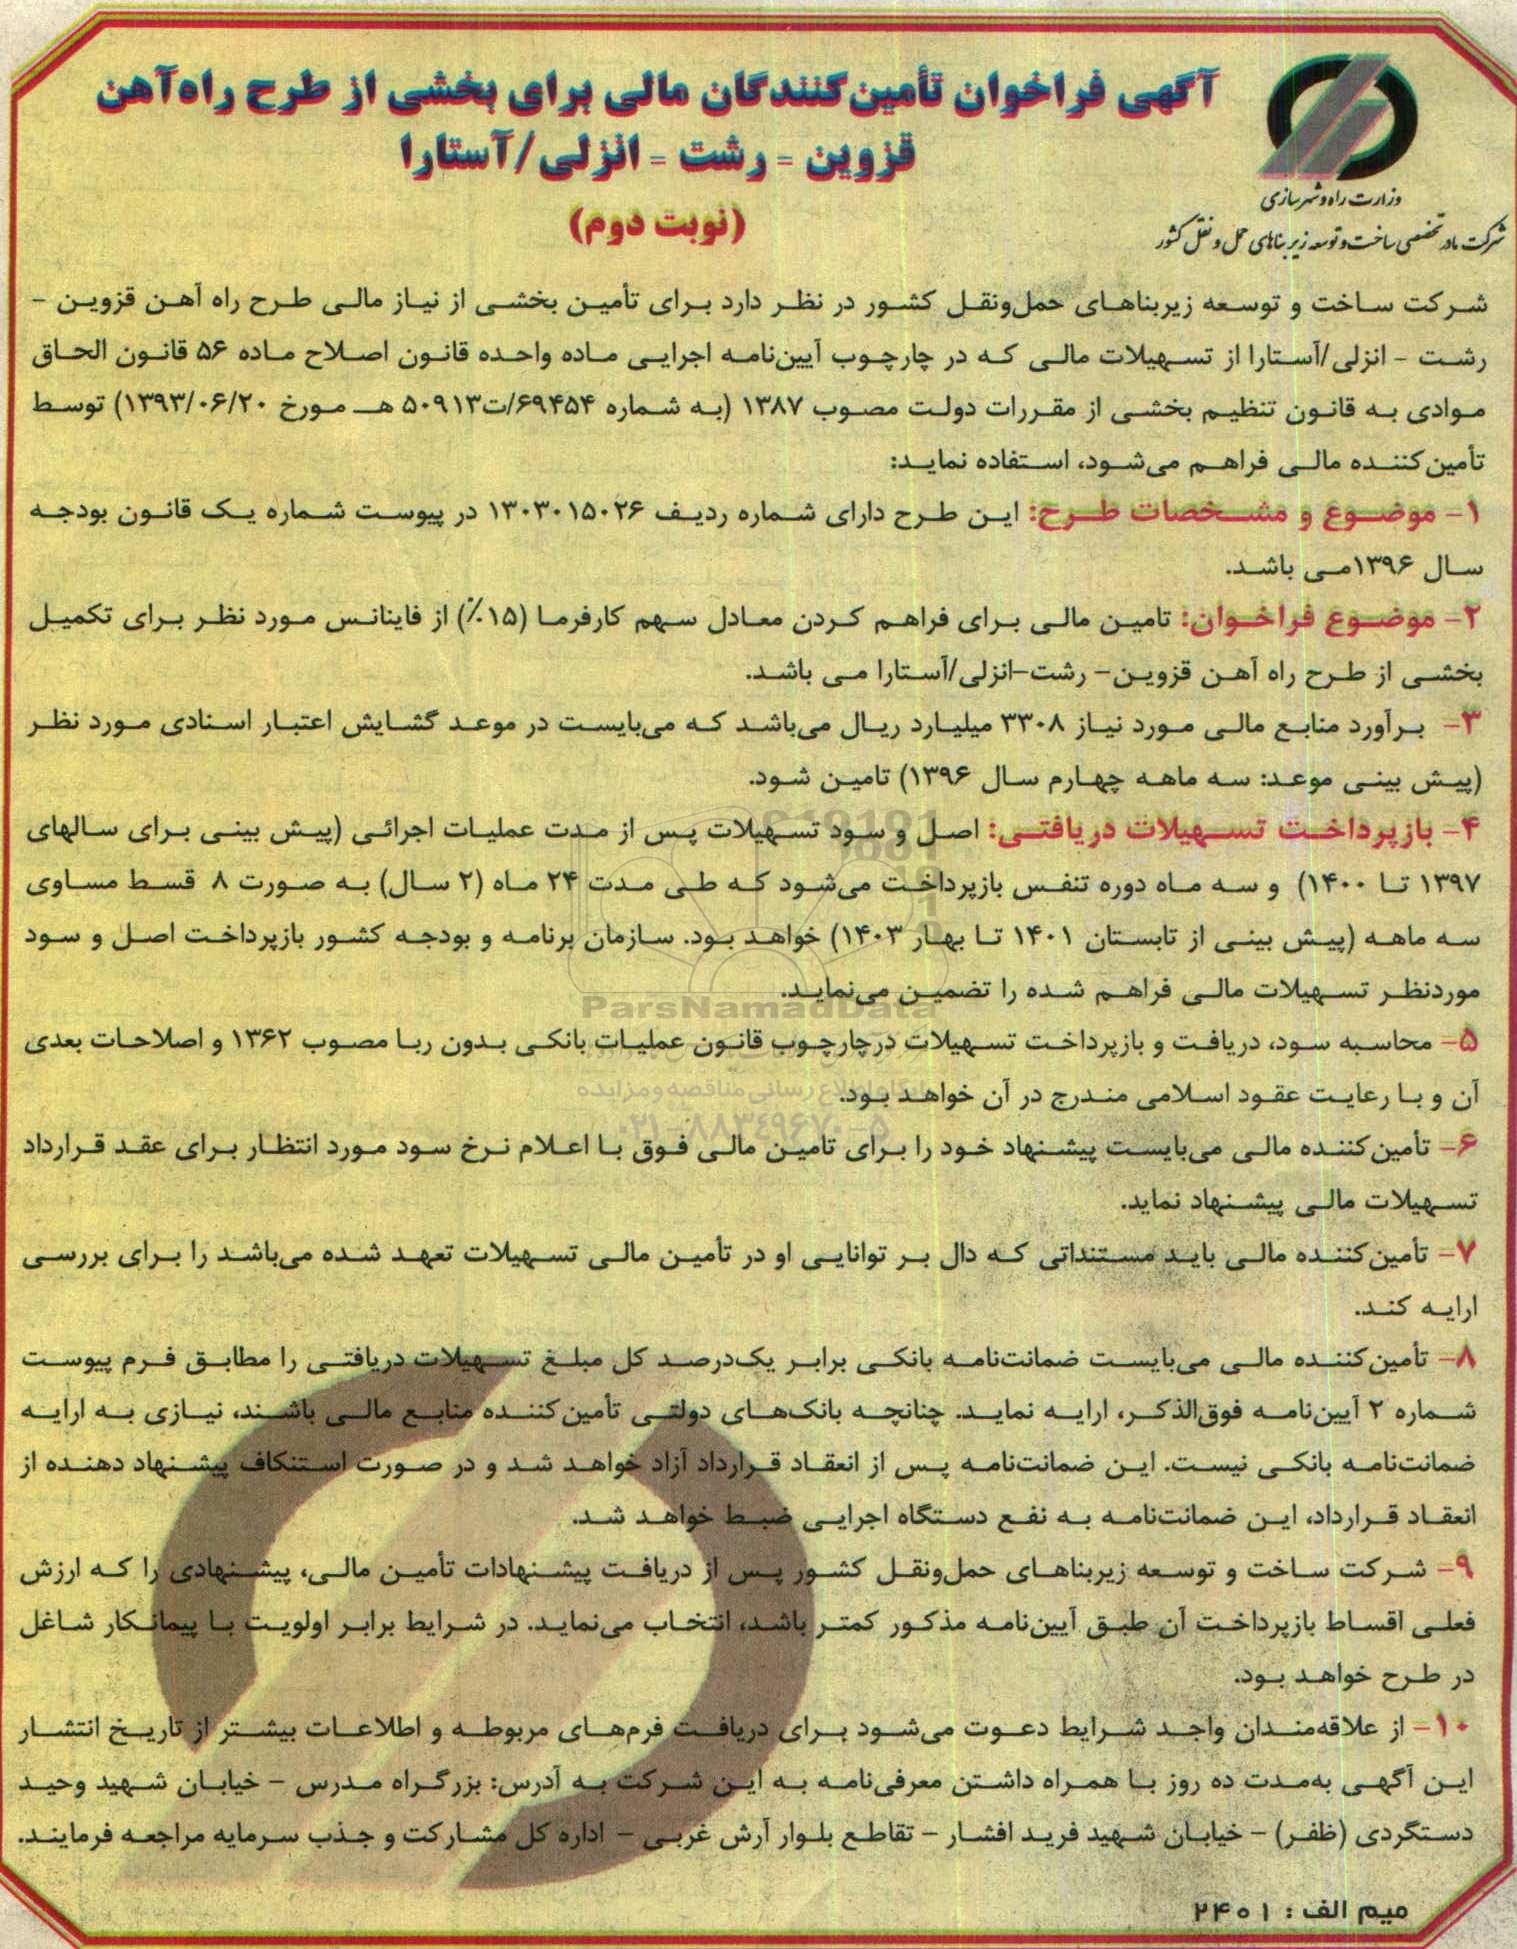 آگهی فراخوان تأمین‌کنندگان مالی برای بخشی از طرح راه‌آهن
قزوین - رشت - انزلی/آستارا
(نوبت دوم)
وزارت راه و شهرسازی
شرکت مادر تخصصی ساخت و توسعه زیربناهای حمل و نقل کشور
شرکت ساخت و توسعه زیربناهای حمل‌ونقل کشور در نظر دارد برای تأمین بخشی از نیاز مالی طرح راه آهن قزوین -
رشت - انزلی/آستارا از تسهیلات مالی که در چارچوب آیین‌نامه اجرایی ماده واحده قانون اصلاح ماده ۵۶ قانون الحاق
موادی به قانون تنظیم بخشی از مقررات دولت مصوب ۱۳۸۷ (به شماره ۶۹۴۵۴/ت۵۰۹۱۳ هـ مورخ ۱۳۹۳/۰۶/۲۰) توسط
تأمین‌کننده مالی فراهم می‌شود، استفاده نماید:
۱- موضوع و مشخصات طرح: این طرح دارای شماره ردیف ۱۳۰۳۰۱۵۰۲۶ در پیوست شماره یک قانون بودجه
سال ۱۳۹۶می باشد.
۲- موضوع فراخوان: تامین مالی برای فراهم کردن معادل سهم کارفرما (۱۵٪) از فاینانس مورد نظر برای تکمیل
بخشی از طرح راه آهن قزوین- رشت-انزلی/آستارا می باشد.
۳- برآورد منابع مالی مورد نیاز ۳۳۰۸ میلیارد ریال می‌باشد که می‌بایست در موعد گشایش اعتبار اسنادی مورد نظر
(پیش بینی موعد: سه ماهه چهارم سال ۱۳۹۶) تامین شود.
۴- بازپرداخت تسهیلات دریافتی: اصل و سود تسهیلات پس از مدت عملیات اجرائی (پیش بینی برای سالهای
۱۳۹۷ تا ۱۴۰۰) و سه ماه دوره تنفس بازپرداخت می‌شود که طی مدت ۲۴ ماه (۲ سال) به صورت ۸ قسط مساوی
سه ماهه (پیش بینی از تابستان ۱۴۰۱ تا بهار ۱۴۰۳) خواهد بود. سازمان برنامه و بودجه کشور بازپرداخت اصل و سود
موردنظر تسهیلات مالی فراهم شده را تضمین می‌نماید.
ParsNamadData
۵- محاسبه سود، دریافت و بازپرداخت تسهیلات درچارچوب قانون عملیات بانکی بدون ربا مصوب ۱۳۶۲ و اصلاحات بعدی
آن و با رعایت عقود اسلامی مندرج در آن خواهد بود.
پایگاه اطلاع رسانی مناقصه و مزایده
۰۲۱-۸۸۳۴۹۶۷۰-۵
۶- تأمین‌کننده مالی می‌بایست پیشنهاد خود را برای تامین مالی فوق با اعلام نرخ سود مورد انتظار برای عقد قرارداد
تسهیلات مالی پیشنهاد نماید.
۷- تأمین‌کننده مالی باید مستنداتی که دال بر توانایی او در تأمین مالی تسهیلات تعهد شده می‌باشد را برای بررسی
ارایه کند.
۸- تأمین‌کننده مالی می‌بایست ضمانت‌نامه بانکی برابر یک‌درصد کل مبلغ تسهیلات دریافتی را مطابق فرم پیوست
شماره ۲ آیین‌نامه فوق‌الذکر، ارایه نماید. چنانچه بانک‌های دولتی تأمین‌کننده منابع مالی باشند، نیازی به ارایه
ضمانت‌نامه بانکی نیست. این ضمانت‌نامه پس از انعقاد قرارداد آزاد خواهد شد و در صورت استنکاف پیشنهاد دهنده از
انعقاد قرارداد، این ضمانت‌نامه به نفع دستگاه اجرایی ضبط خواهد شد.
۹- شرکت ساخت و توسعه زیربناهای حمل‌ونقل کشور پس از دریافت پیشنهادات تأمین مالی، پیشنهادی را که ارزش
فعلی اقساط بازپرداخت آن طبق آیین‌نامه مذکور کمتر باشد، انتخاب می‌نماید. در شرایط برابر اولویت با پیمانکار شاغل
در طرح خواهد بود.
۱۰- از علاقه‌مندان واجد شرایط دعوت می‌شود برای دریافت فرم‌های مربوطه و اطلاعات بیشتر از تاریخ انتشار
این آگهی به‌مدت ده روز با همراه داشتن معرفی‌نامه به این شرکت به آدرس: بزرگراه مدرس - خیابان شهید وحید
دستگردی (ظفر) - خیابان شهید فرید افشار - تقاطع بلوار آرش غربی - اداره کل مشارکت و جذب سرمایه مراجعه فرمایند.
میم الف : ۲۴۰۱